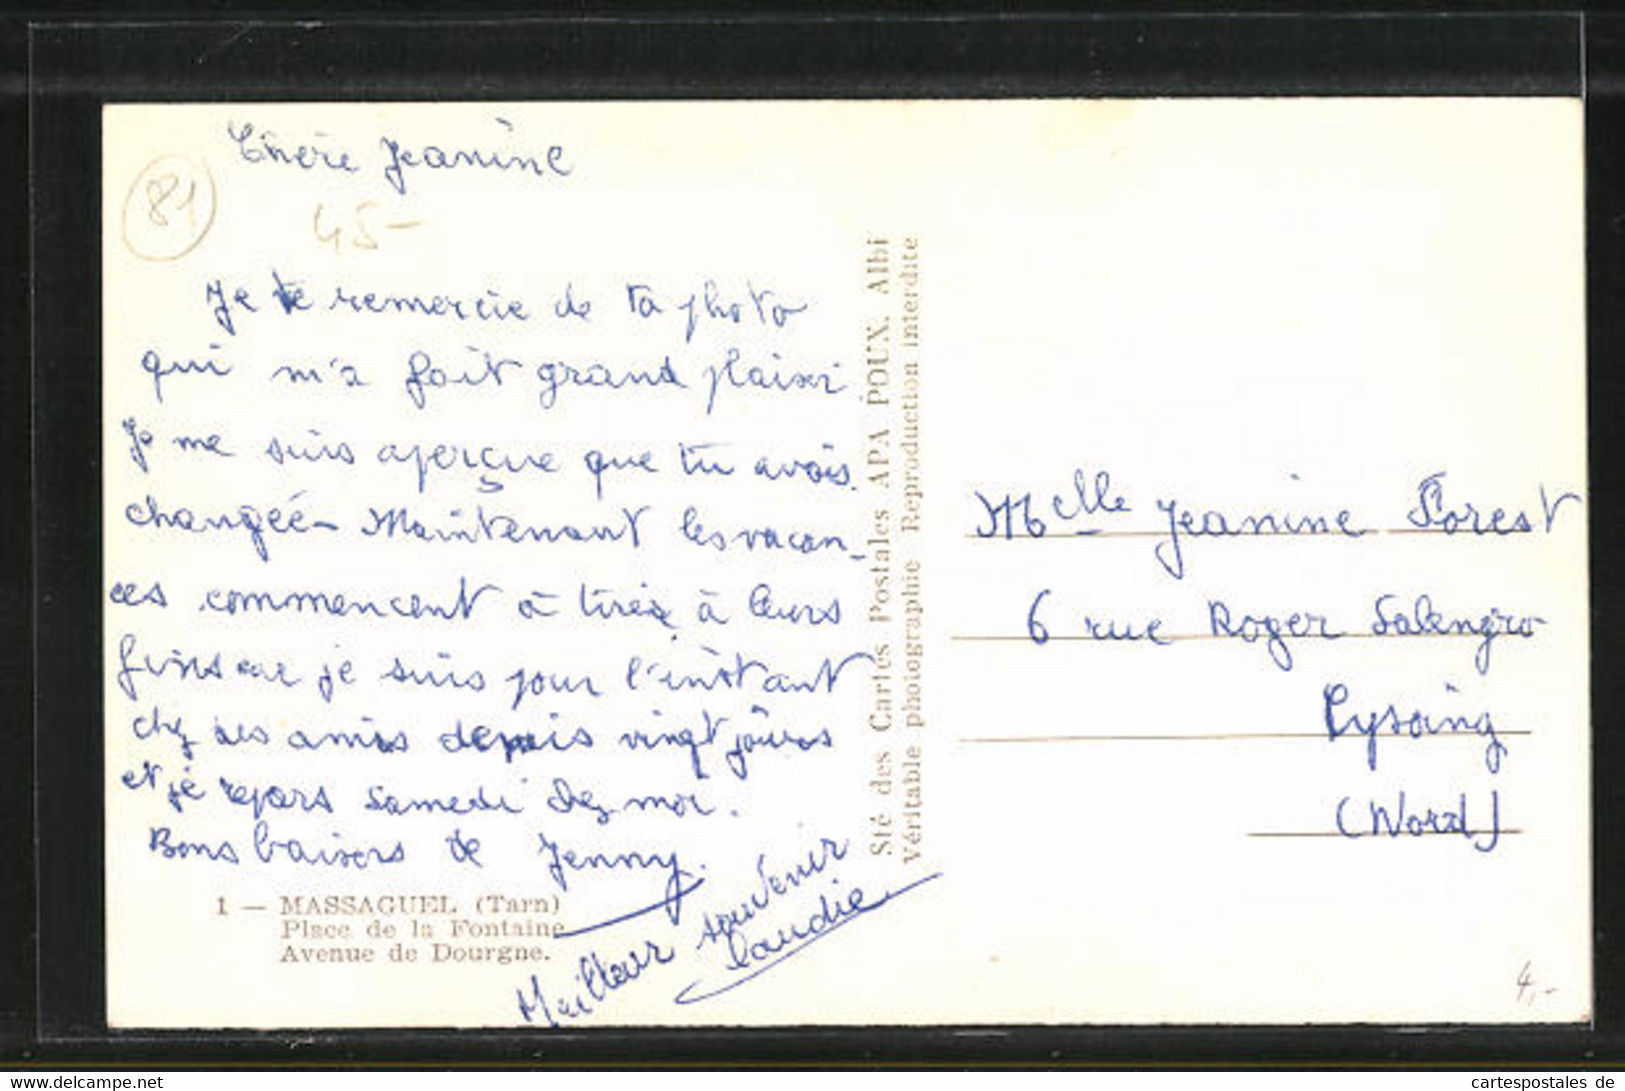 Chère Jeanine
81
45-
Je te remercie de ta photo
qui m'a fait grand plaisir
Je me suis aperçue que tu avais
changée - Maintenant les vacan-
ces commencent à tirer à leurs
fins car je suis pour l'instant
chez des amis depuis vingt jours
et je repars samedi chez moi.
Bons baisers de Jenny.
Meilleur souvenir
Claudie
1 — MASSAGUEL (Tarn)
Place de la Fontaine
Avenue de Dourgne.
Sté des Cartes Postales APA POUX. Albi
Véritable photographie Reproduction interdite
Melle Jeanine Forest
6 rue Roger Salengro
Cysoing
(Nord)
4,-
www.delcampe.net
cartespostales de